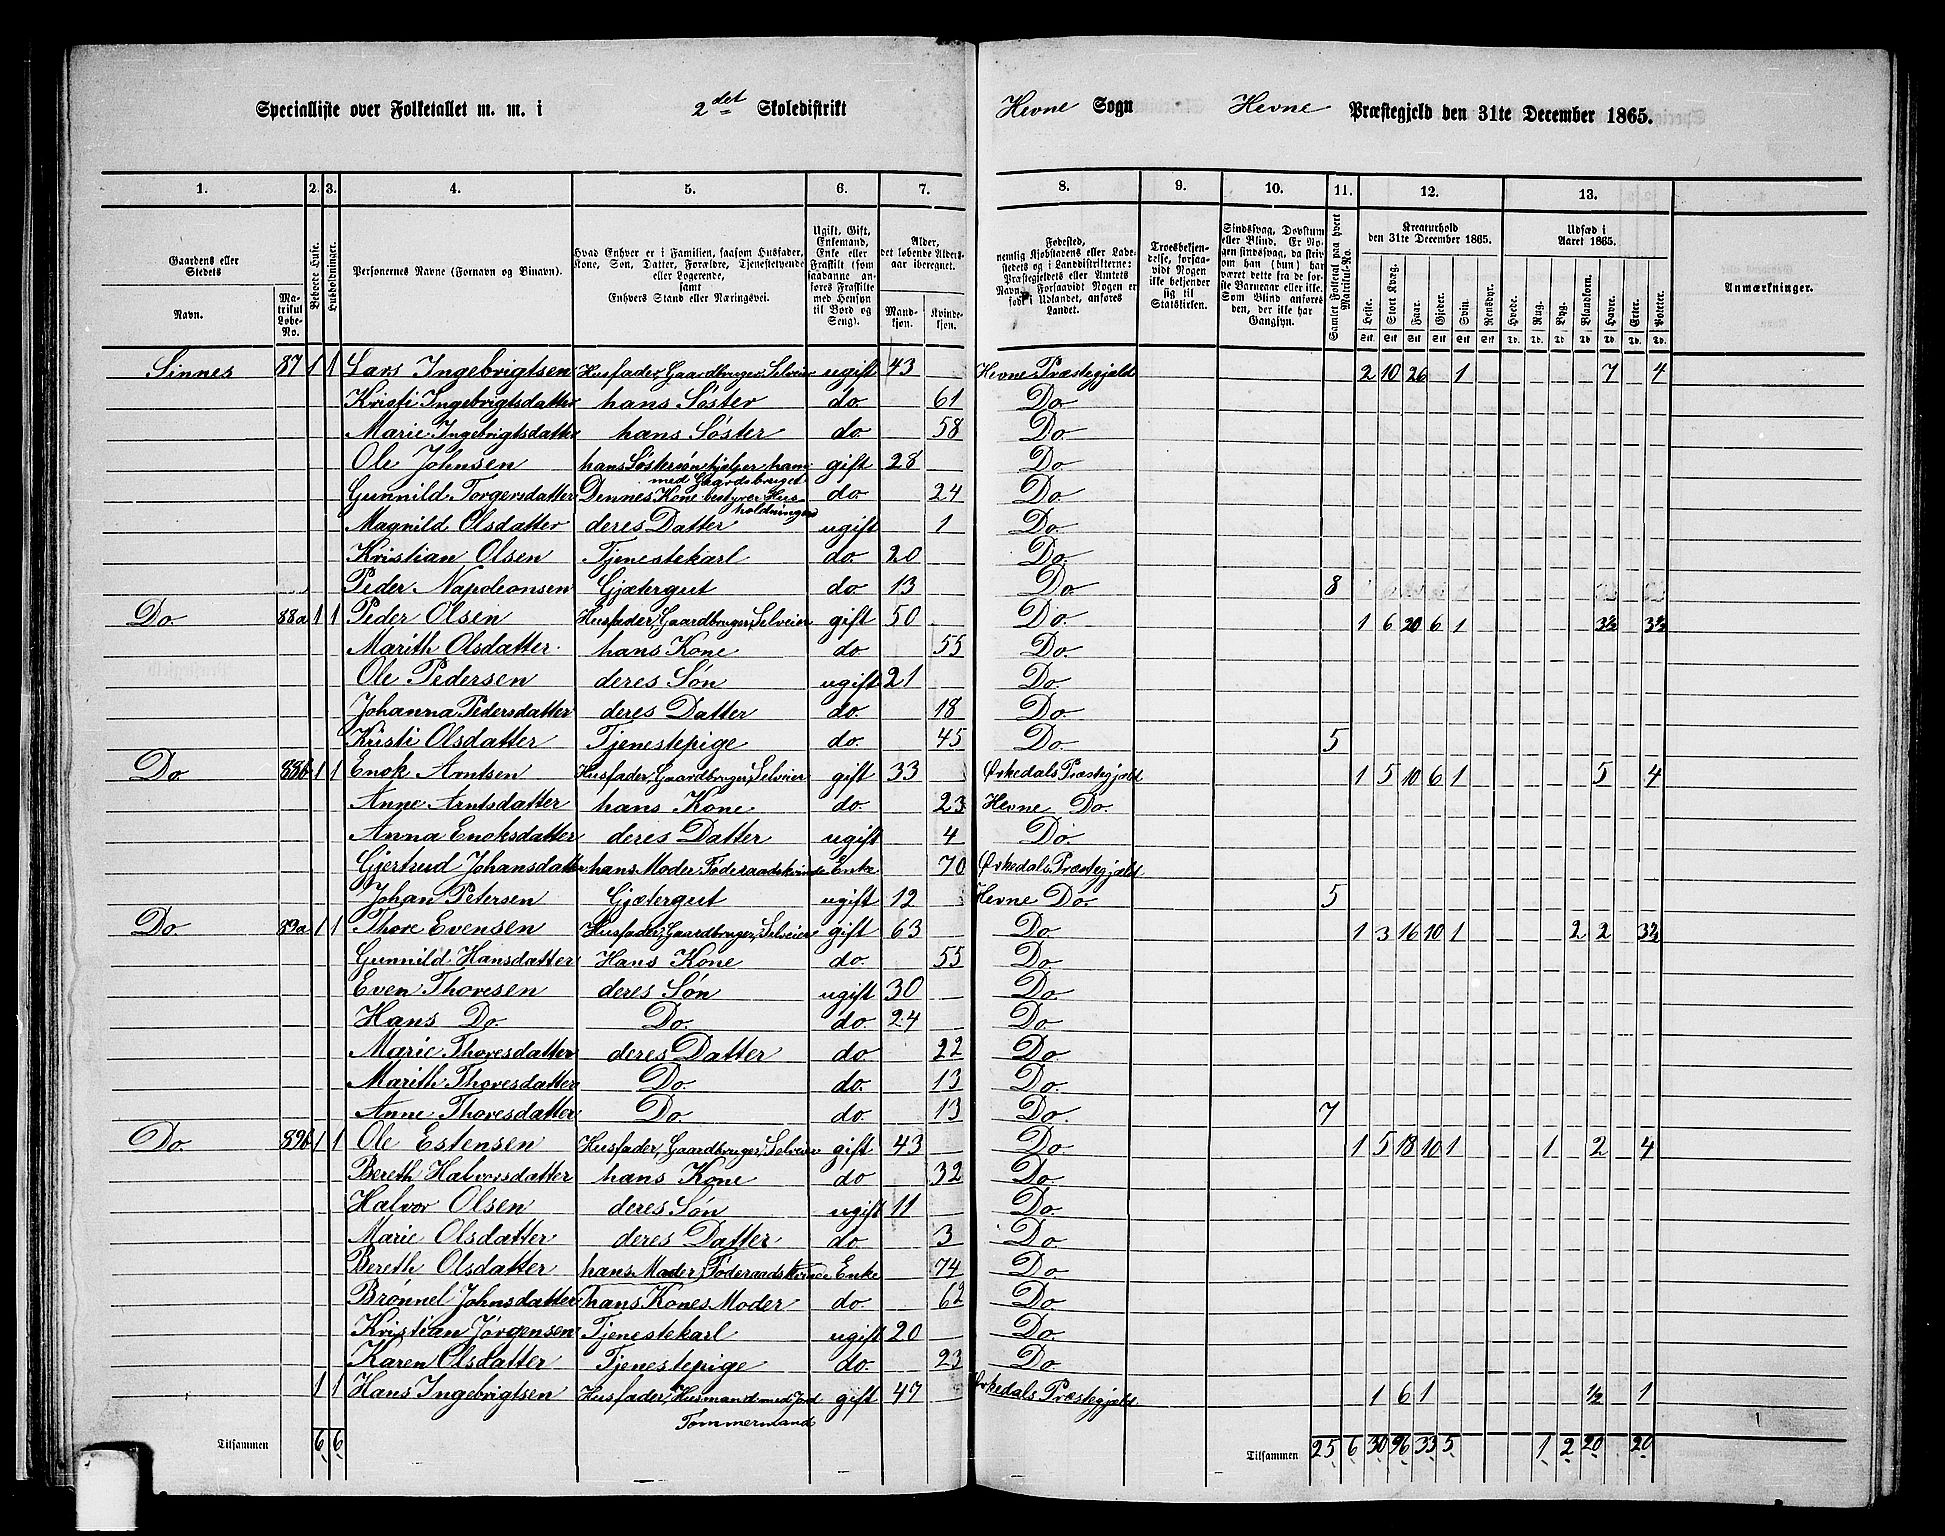 Specialliste over Folketallet m. m. i 2det Skoledistrikt Hevne Sogn Hevne Præstegjeld den 31te December 1865.
1. 2. 3. 4. 5. 6. 7. 8. 9. 10. 11. 12. 13.
Gaardens eller Stedets
Navn.
Matrikul Løbe-No.
Beboede Huse.
Husholdninger.
Personernes Navne (Fornavn og Binavn).
Hvad Enhver er i Familien, saasom Husfader, Kone, Søn, Datter, Forældre, Tjenestetyende eller Logerende, samt Enhvers Stand eller Næringsvei.
Ugift, Gift, Enkemand, Enke eller Fraskilt (som saadanne anføres Fraskilte med Hensyn til Bord og Seng).
Alder, det løbende Aldersaar iberegnet.
Mandkjøn. Kvindekjøn.
Fødested, nemlig Kjøbstadens eller Ladestedets og i Landdistrikterne: Præstegjeldets eller Amtets Navn. Forsaavidt Nogen er født i Udlandet, anføres Landet.
Troesbekjendelse, forsaavidt Nogen ikke bekjender sig til Statskirken.
Sindssvag, Døvstum eller Blind. Er Nogen sindssvag, da skriv om han (hun) har været dette fra de første Barneaar eller ikke. Som Blind anføres den, der ikke har Gangsyn.
Samlet Folketal paa hvert Matrikul-No.
Kreaturhold den 31te December 1865.
Heste. Stort Kvæg. Faar. Gjeder. Svin. Rensdyr.
Udsæd i Aaret 1865.
Hvede. Rug. Byg. Blandkorn. Havre. Erter. Poteter.
Stk. Stk. Stk. Stk. Stk. Stk. Td. Td. Td. Td. Td. Td. Td.
Anmærkninger.
Sinnes 87 1 1 Lars Ingebrigtsen Husfader, Gaardbruger Selveier ugift 43 Hevne Præstegjæld 2 10 26 1 7 4
Kristi Ingebrigtsdatter hans Søster do. 61 Do.
Marie Ingebrigtsdatter hans Søster do. 58 Do.
Ole Johnsen hans Søstersøn hjelper ham med Gaardsbruget gift 28 Do.
Gunnild Torgersdatter Dennes Kone bestyrer Husholdningen do. 24 Do.
Magnild Olsdatter deres Datter ugift 1 Do.
Kristian Olsen Tjenestekarl do. 20 Do.
Peder Napoleonsen Gjætergut do. 13 Do. 8
Do. 88a 1 1 Peder Olsen Husfader, Gaardbruger, Selveier gift 50 Do. 1 6 20 6 1 3½ 3½
Marith Olsdatter hans Kone do. 55 Do.
Ole Pedersen deres Søn ugift 21 Do.
Johanna Pedersdatter deres Datter do. 18 Do.
Kristi Olsdatter Tjenestepige do. 45 Do. 5
Do 88b 1 1 Enok Arntsen Husfader, Gaardbruger, Selveier gift 33 Ørkedals Præstegjæld 1 5 10 6 1 5 4
Anne Arntsdatter hans Kone do. 23 Hevne Do.
Anna Enoksdatter deres Datter ugift 4 Do.
Gjertrud Johansdatter hans Moder Føderaadskvinde Enke 70 Ørkedals Præstegjæld
Johan Petersen Gjætergut ugift 12 Hevne Do. 5
Do 89a 1 1 Thore Evensen Husfader, Gaardbruger, Selveier gift 63 Do 1 3 16 10 1 2 2 3½
Gunnild Hansdatter Hans Kone do. 55 Do
Even Thoresen deres Søn ugift 30 Do.
Hans Do. Do. do. 24 Do
Marie Thoresdatter deres Datter do 22 Do.
Marith Thoresdatter Do do. 13 Do.
Anne Thoresdatter Do. do 13 Do. 7
Do. 89b 1 1 Ole Estensen Husfader, Gaardbruger, Selveier gift 43 Do 1 5 18 10 1 1 2 4
Bereth Halvorsdatter hans Kone do 32 Do.
Halvor Olsen deres Søn ugift 11 Do.
Marie Olsdatter deres Datter do. 3 Do.
Bereth Olsdatter hans Moder, Føderaadskvinde Enke 74 Do.
Brønnel Johnsdatter hans Kones Moder do. 62 Do.
Kristian Jørgensen Tjenestekarl ugift 20 Do.
Karen Olsdatter Tjenestepige do. 23 Do.
1 1 Hans Ingebrigtsen Husfader, Husmand med Jord Tømmermand gift 47 Ørkedals Præstegjæld 1 6 1 ½ 1
Tilsammen 6 6 Tilsammen 25 6 30 96 33 5 1 2 20 20